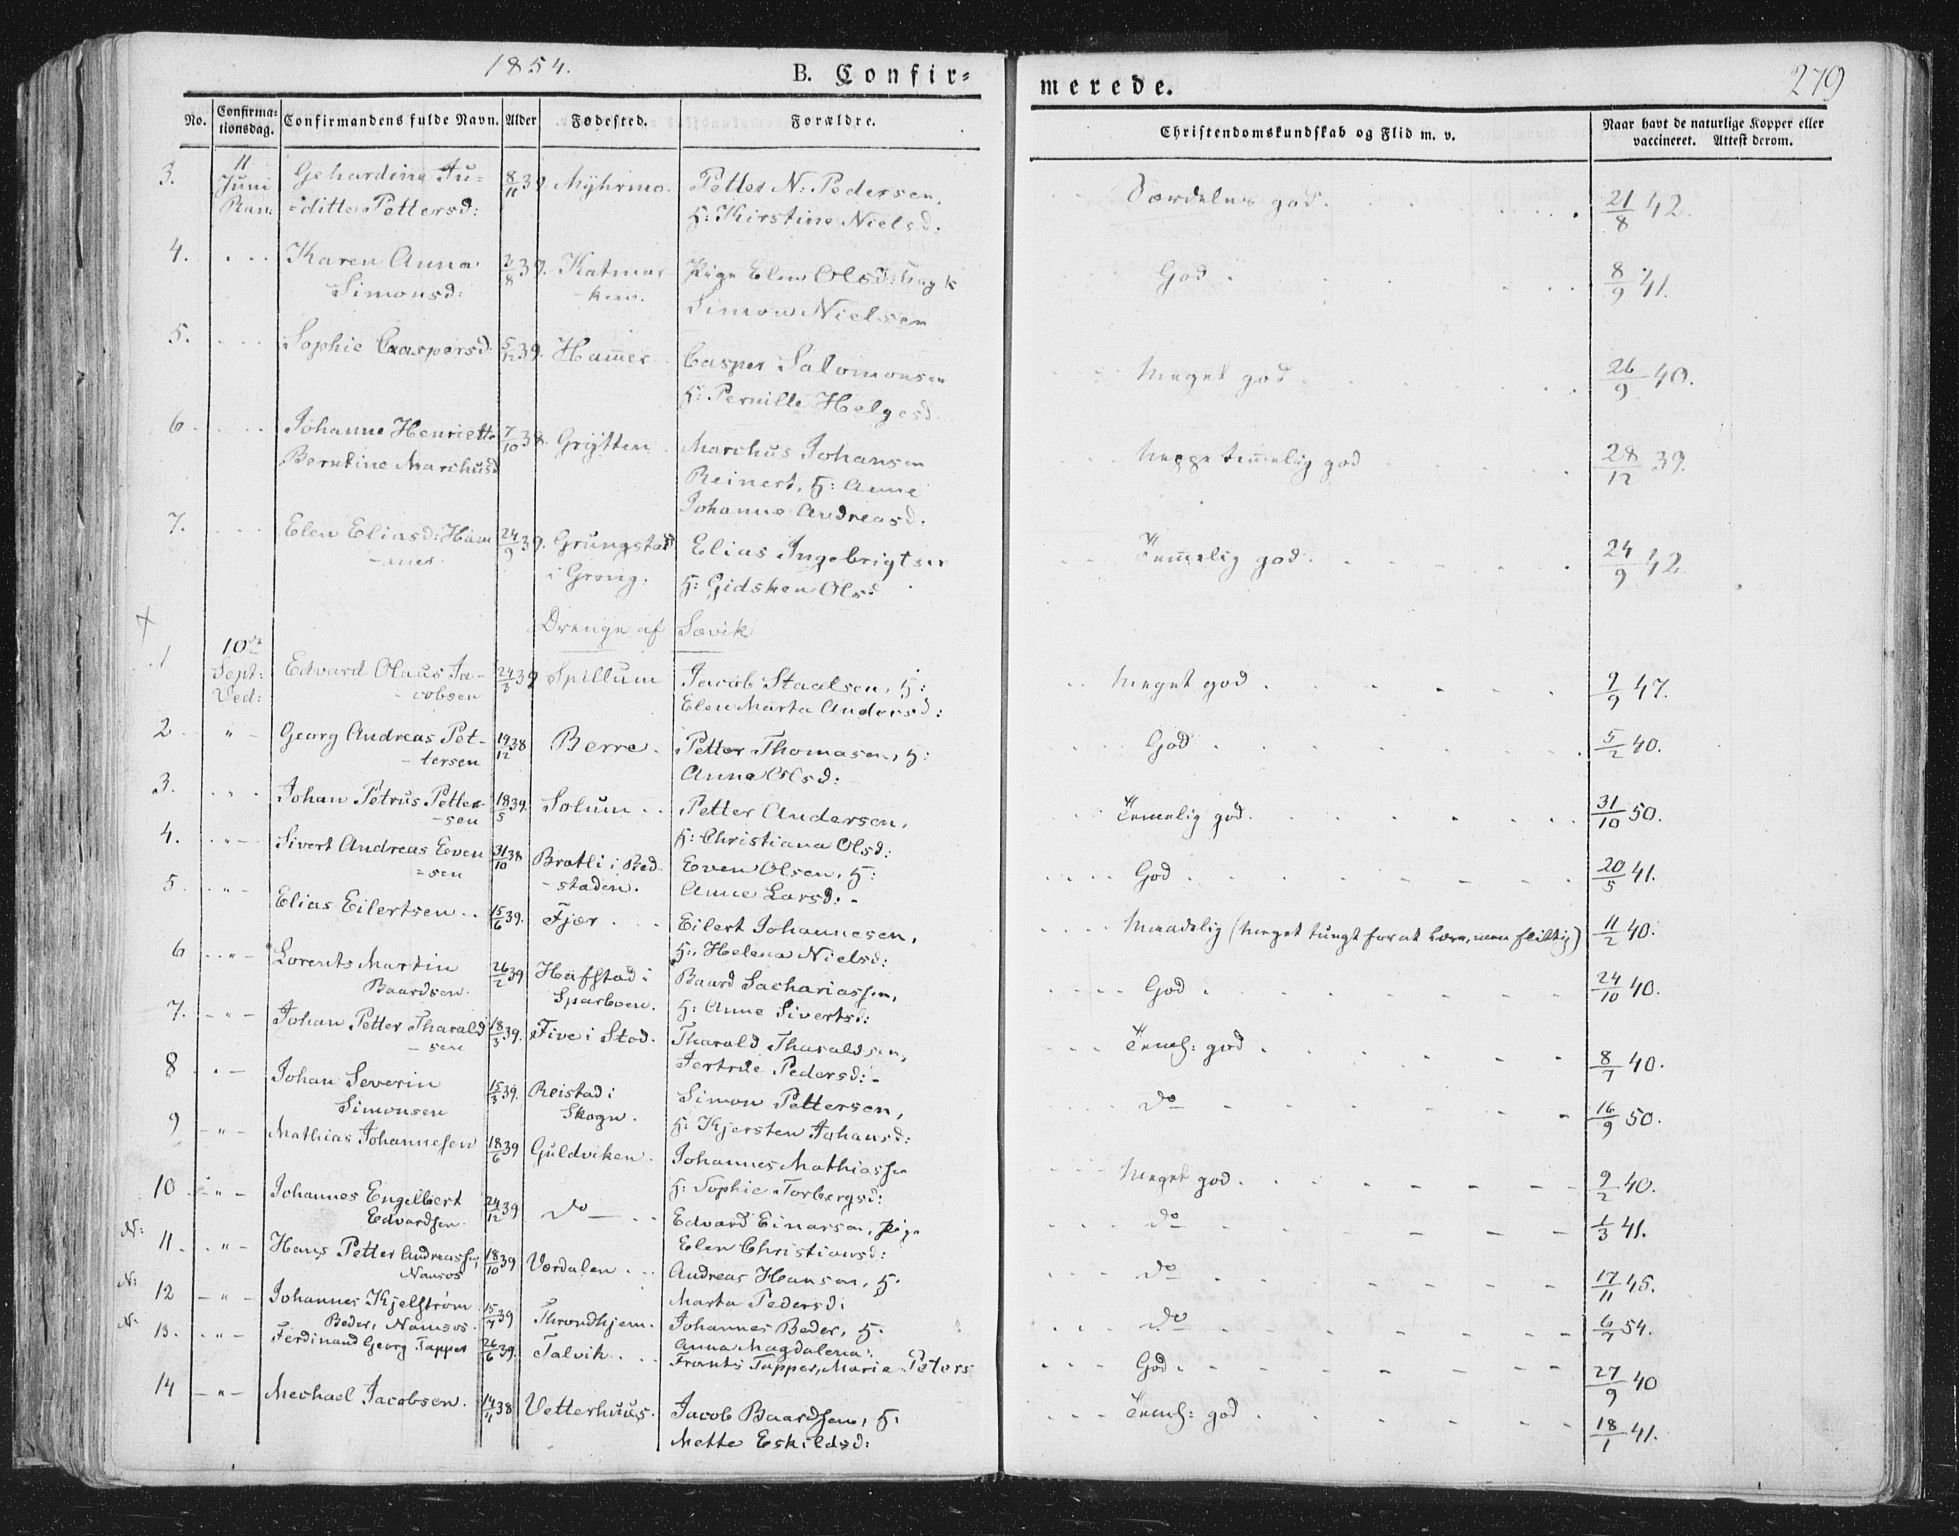 1854.
B. Confir-
merede.
279
No.
Confirma-
tionsdag.
Confirmandens fulde Navn.
Alder
Fødested.
Forældre.
Christendomskundskab og Flid m. v.
Naar havt de naturlige Kopper eller
vaccineret. Attest derom.
3. 11 Juni Gehardine Ju- 8/11 39. Myhrmo. Petter N: Pedersen, Særdeles god. 21/8 42.
=ditte Pettersd: H: Kirstine Nielsd.
4. Karen Anna 3/8 39. Katmar- Pige Elen Olsd: God. 8/9 41.
Simonsd: Simon Nielsen
5. Sophie Caspersd. 5/12 39. Hammer Casper Salomonsen Meget god 26/9 40.
H: Pernille Helgesd.
6. Johanne Henriette 7/10 38. Grytten. Marchus Johansen temmelig god 28/12 39.
Berntine Marchusd Reinert, H: Anne
Johanne Andreasd.
7. Elen Eliasd: Ham 24/9 39. Grungstad Elias Ingebrigtsen Temmelig god. 24/9 42.
-mer. i Grong. H: Gidsken Olsd
Drenge af Sævik
1 10de Sept: Edvard Olaus Ja- 24/3 39 Spillum Jacob Staalsen, H: Meget god. 9/9 47.
Ved: -cobsen Elen Marta Andersd:
2 " Georg Andreas Pet- 19/12 38 Berre. Petter Thomasen, H: God 5/2 40.
-tersen Anne Olsd:
3. Johan Petrus Petter- 18/5 39. Solum Petter Andersen, Temelig god. 31/10 50.
-sen H: Christiana Olsd:
4. " Sivert Andreas Even 31/10 38 Bratli i Bed- Even Olsen, H: God 20/5 41.
=sen -staden. Anne Larsd:
5. " Elias Eilertsen 15/6 39. Fjær Eilert Johannesen, Maadelig (meget tungt for at lære, men flittig) 11/2 40.
H: Helena Nielsd:
6 " Lorents Martin 26/2 39 Hafstad i Baard Sachariassen, God 24/10 40.
Baardsen. Sparboen. H: Anne Sivertsd:
7. " Johan Petter Tharald 18/3 39. Five i Stod. Tharald Tharaldsen, Temel: god 8/7 40.
-sen Jertrue Pedersd:
8 Johan Severin 15/3 39. Reistad i Simon Pettersen, do 16/9 50.
Simonsen Skogn. H: Kjersten Johansd:
9 " Mathias Johannesen 18/6 39 Guldviken. Johannes Mathiassen Meget god. 9/2 40.
H: Sophie Torbergsd:
10 " Johannes Engelbert 24/12 39 do Edvard Einarsen, Pige do 1/3 41.
Edvardsen. Elen Christiansd:
N: 11. " Hans Petter Andreassen, 18/10 39 Værdalen Andreas Hansen, H: do 17/11 45.
Namsos Marta Pedersd:
N: 12 " Johannes Kjelstrøm 15/7 39 Throndhjem. Johannes Beder, H: do 6/7 54.
Beder, Namsos. Anna Magdalena:
N. 13. " Ferdinand Georg Tapper 26/6 39. Talvik. Frants Tapper, Marie Peters God. 27/9 40
14 " Mechael Jacobsen. 14/4 38 Vetterhuus. Jacob Baardsen, H: Temel: god 18/1 41.
Mette Eskildsd: